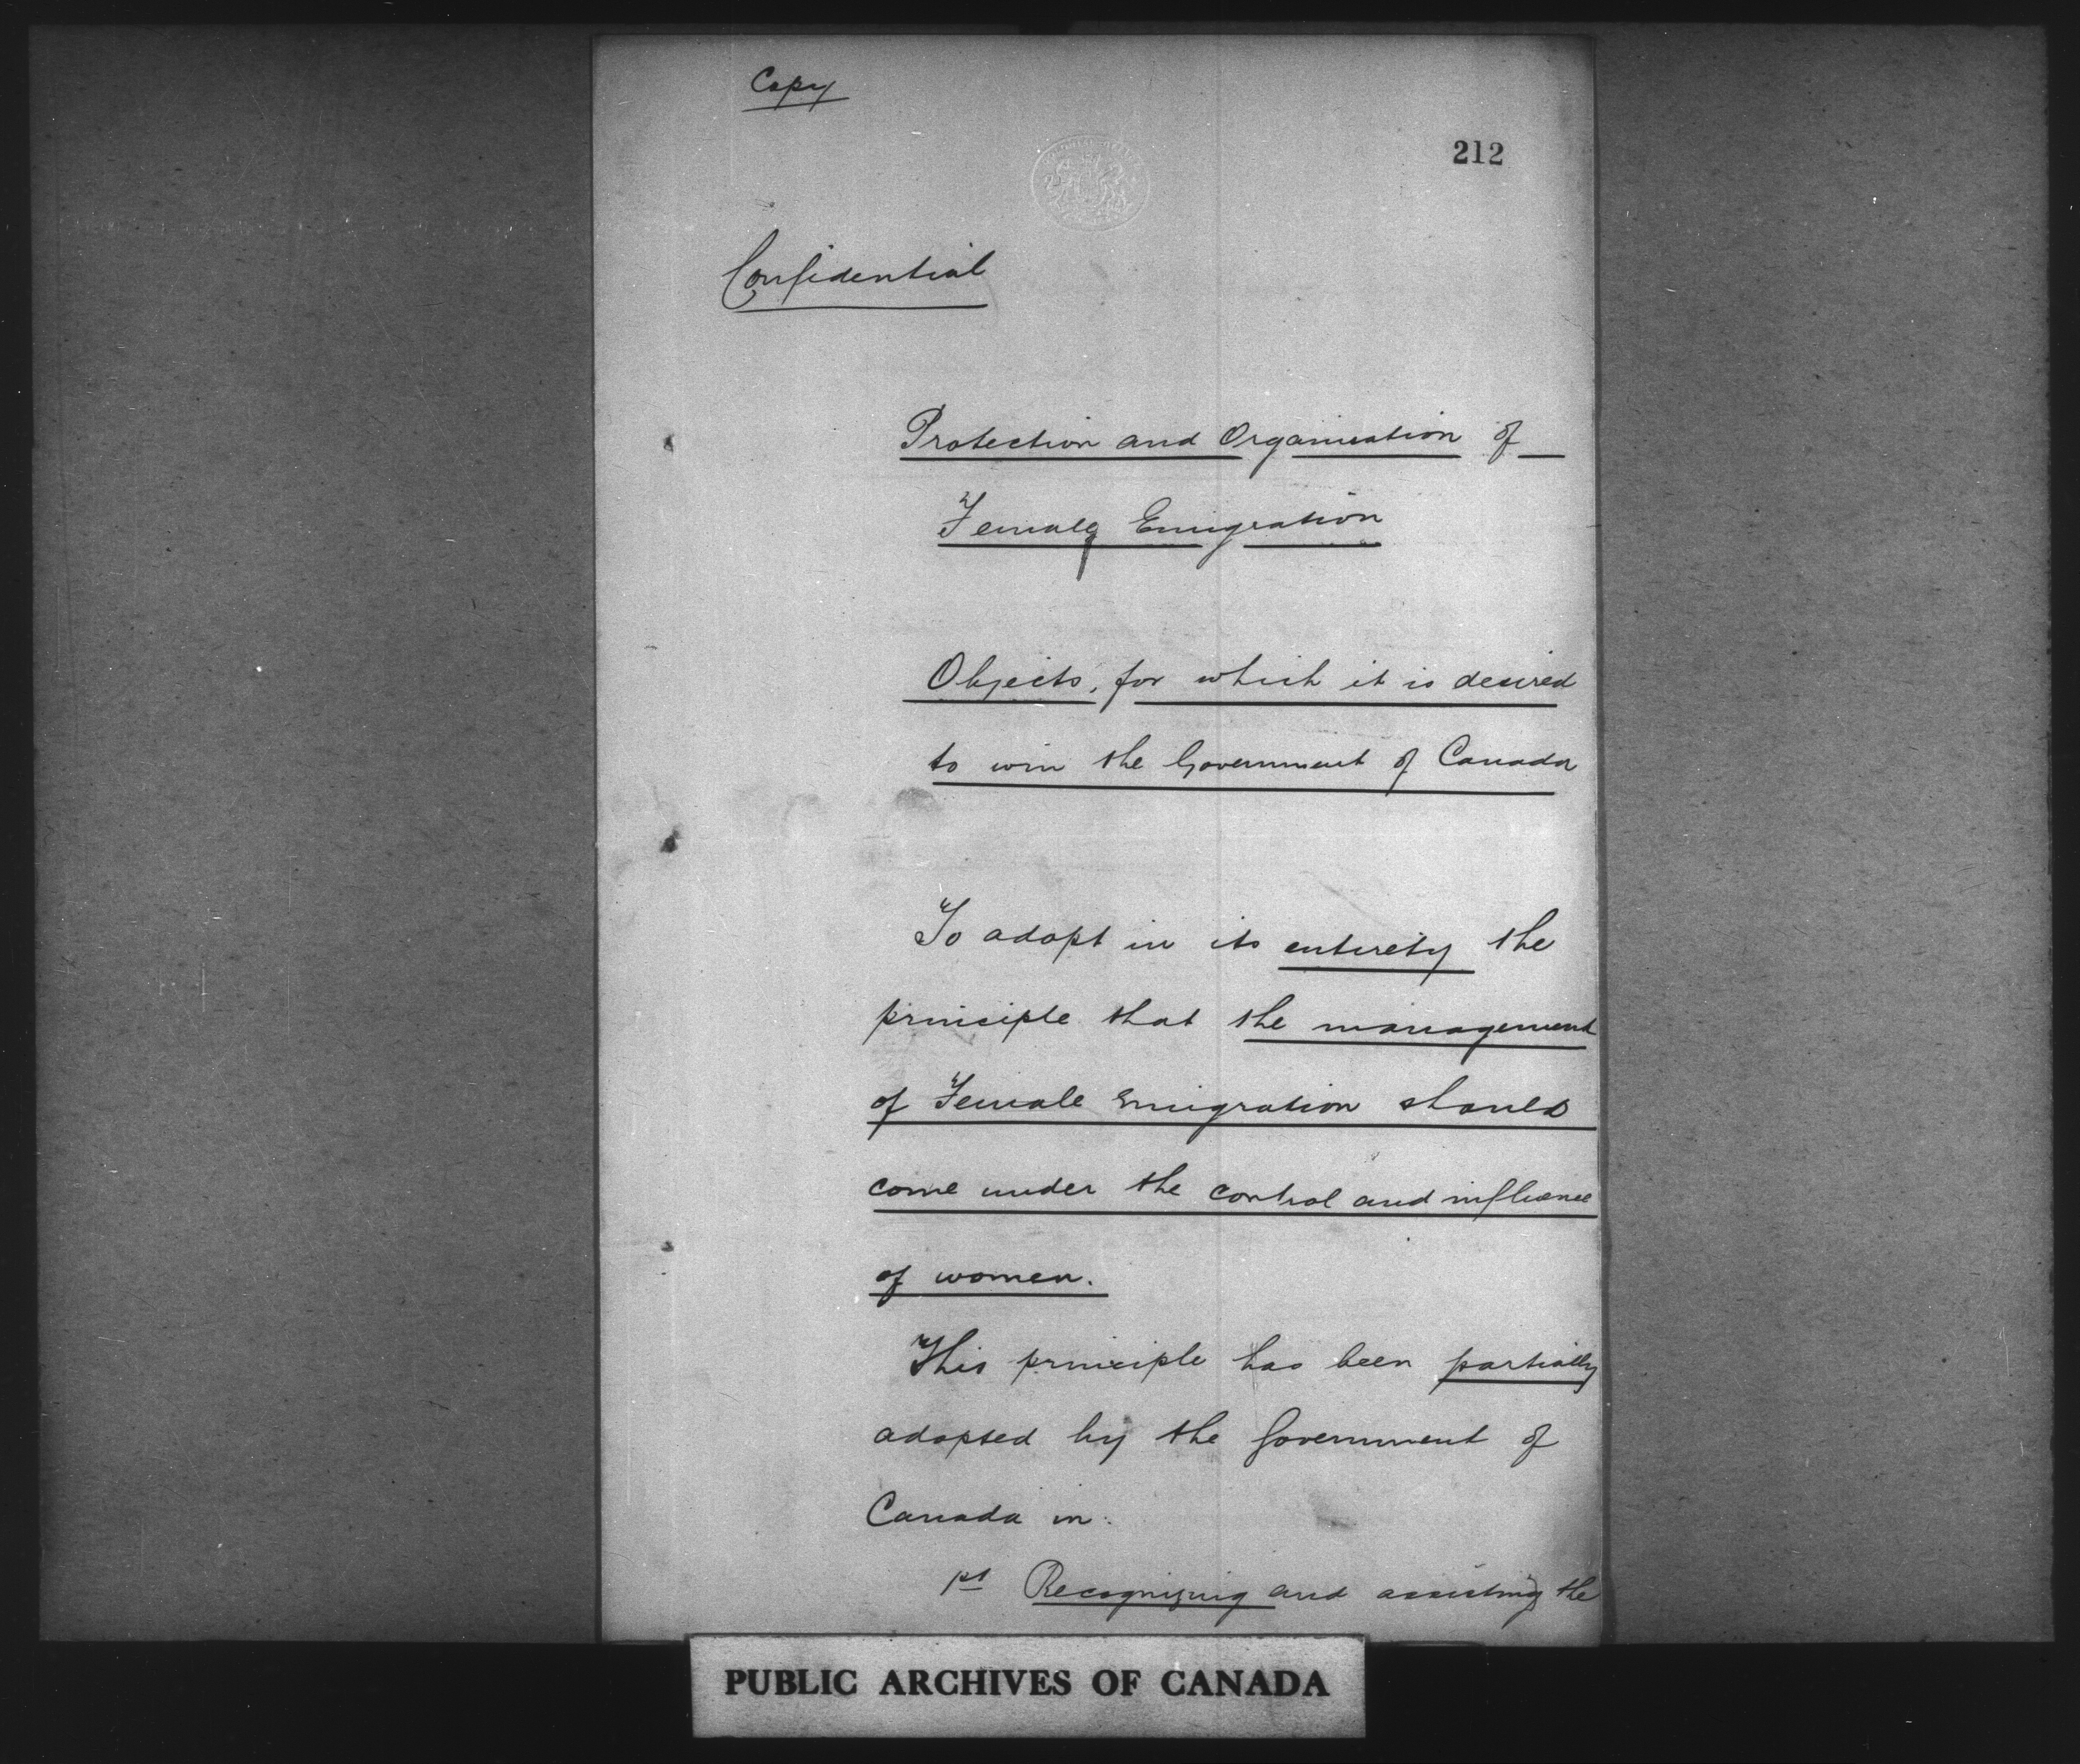 Copy
212
Confidential
Protection and Organisation of
Female Emigration
Objects, for which it is desired
to win the Government of Canada
To adopt in its entirety the
principle that the management
of Female Emigration should
come under the control and influence
of women.
This principle has been partially
adopted by the Government of
Canada in:
1st Recognizing and assisting the
PUBLIC ARCHIVES OF CANADA